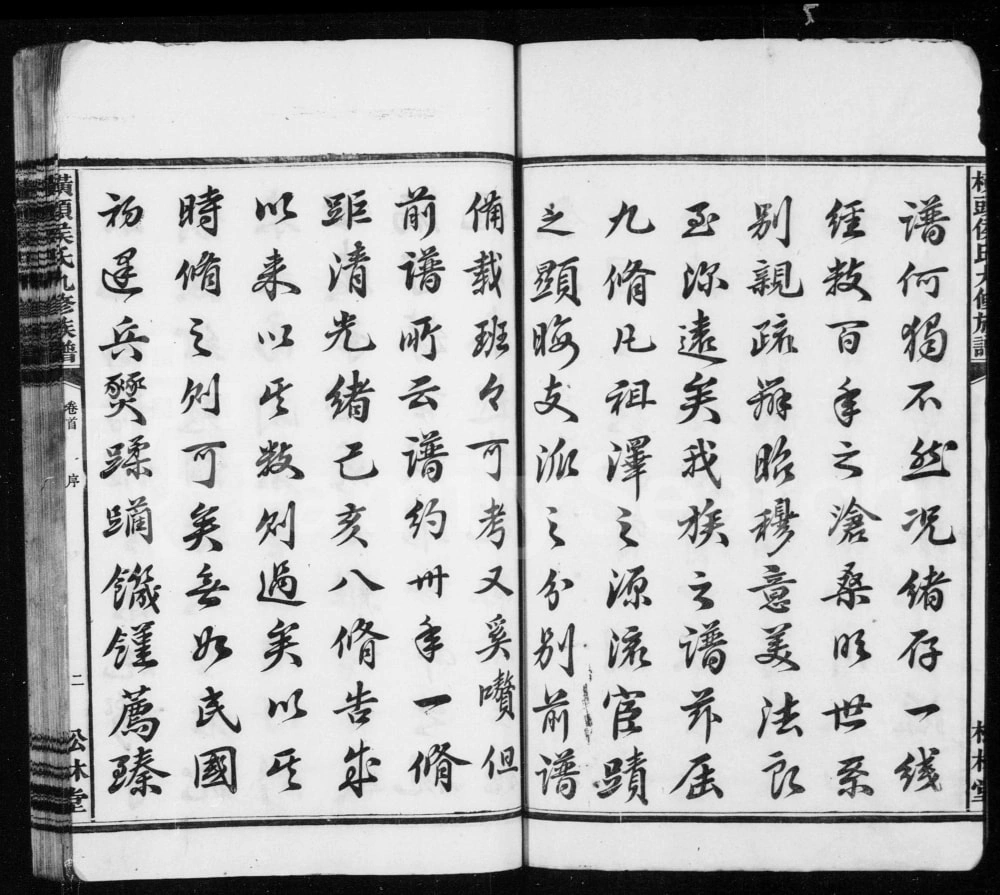 譜何獨不然況緒存一綫
經數百年之滄桑明世系
別親疏辨昭穆意美法良
至深遠矣我族之譜茲屆
九脩凡祖澤之源流宦蹟
之顯晦支派之分別前譜
備載班々可考又奚囋但
前譜所云譜約卅年一脩
距清光緒己亥八脩告成
以來以其數則過矣以其
時脩之則可矣無如民國
初兵燹蹂躪饑饉薦臻
橫頭侯氏九修族譜
卷首
序
二
松林堂